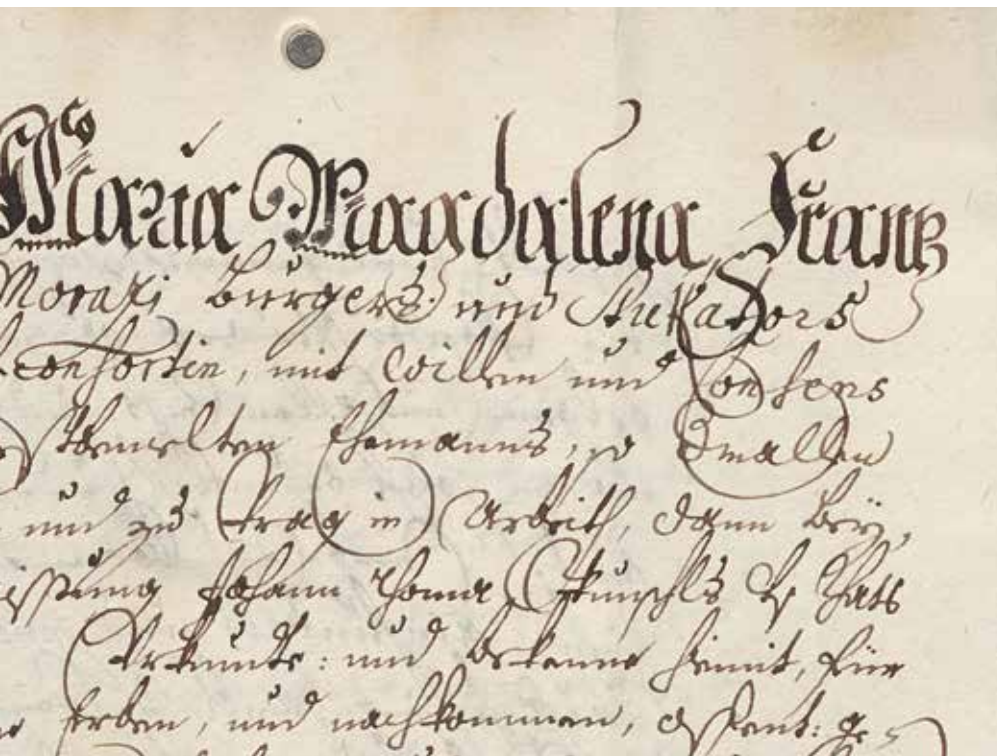 Maria Magdalena Frantz
Moraxi Burgers und Stukators
consortin, mit willen und Consens
Ehemanns, so dmallen
und zu Prag in Arbeith, dann Bey
Johann Thoma Raths
Urkunde: und bekenne hiemit, für
Erben, und nachkommen,